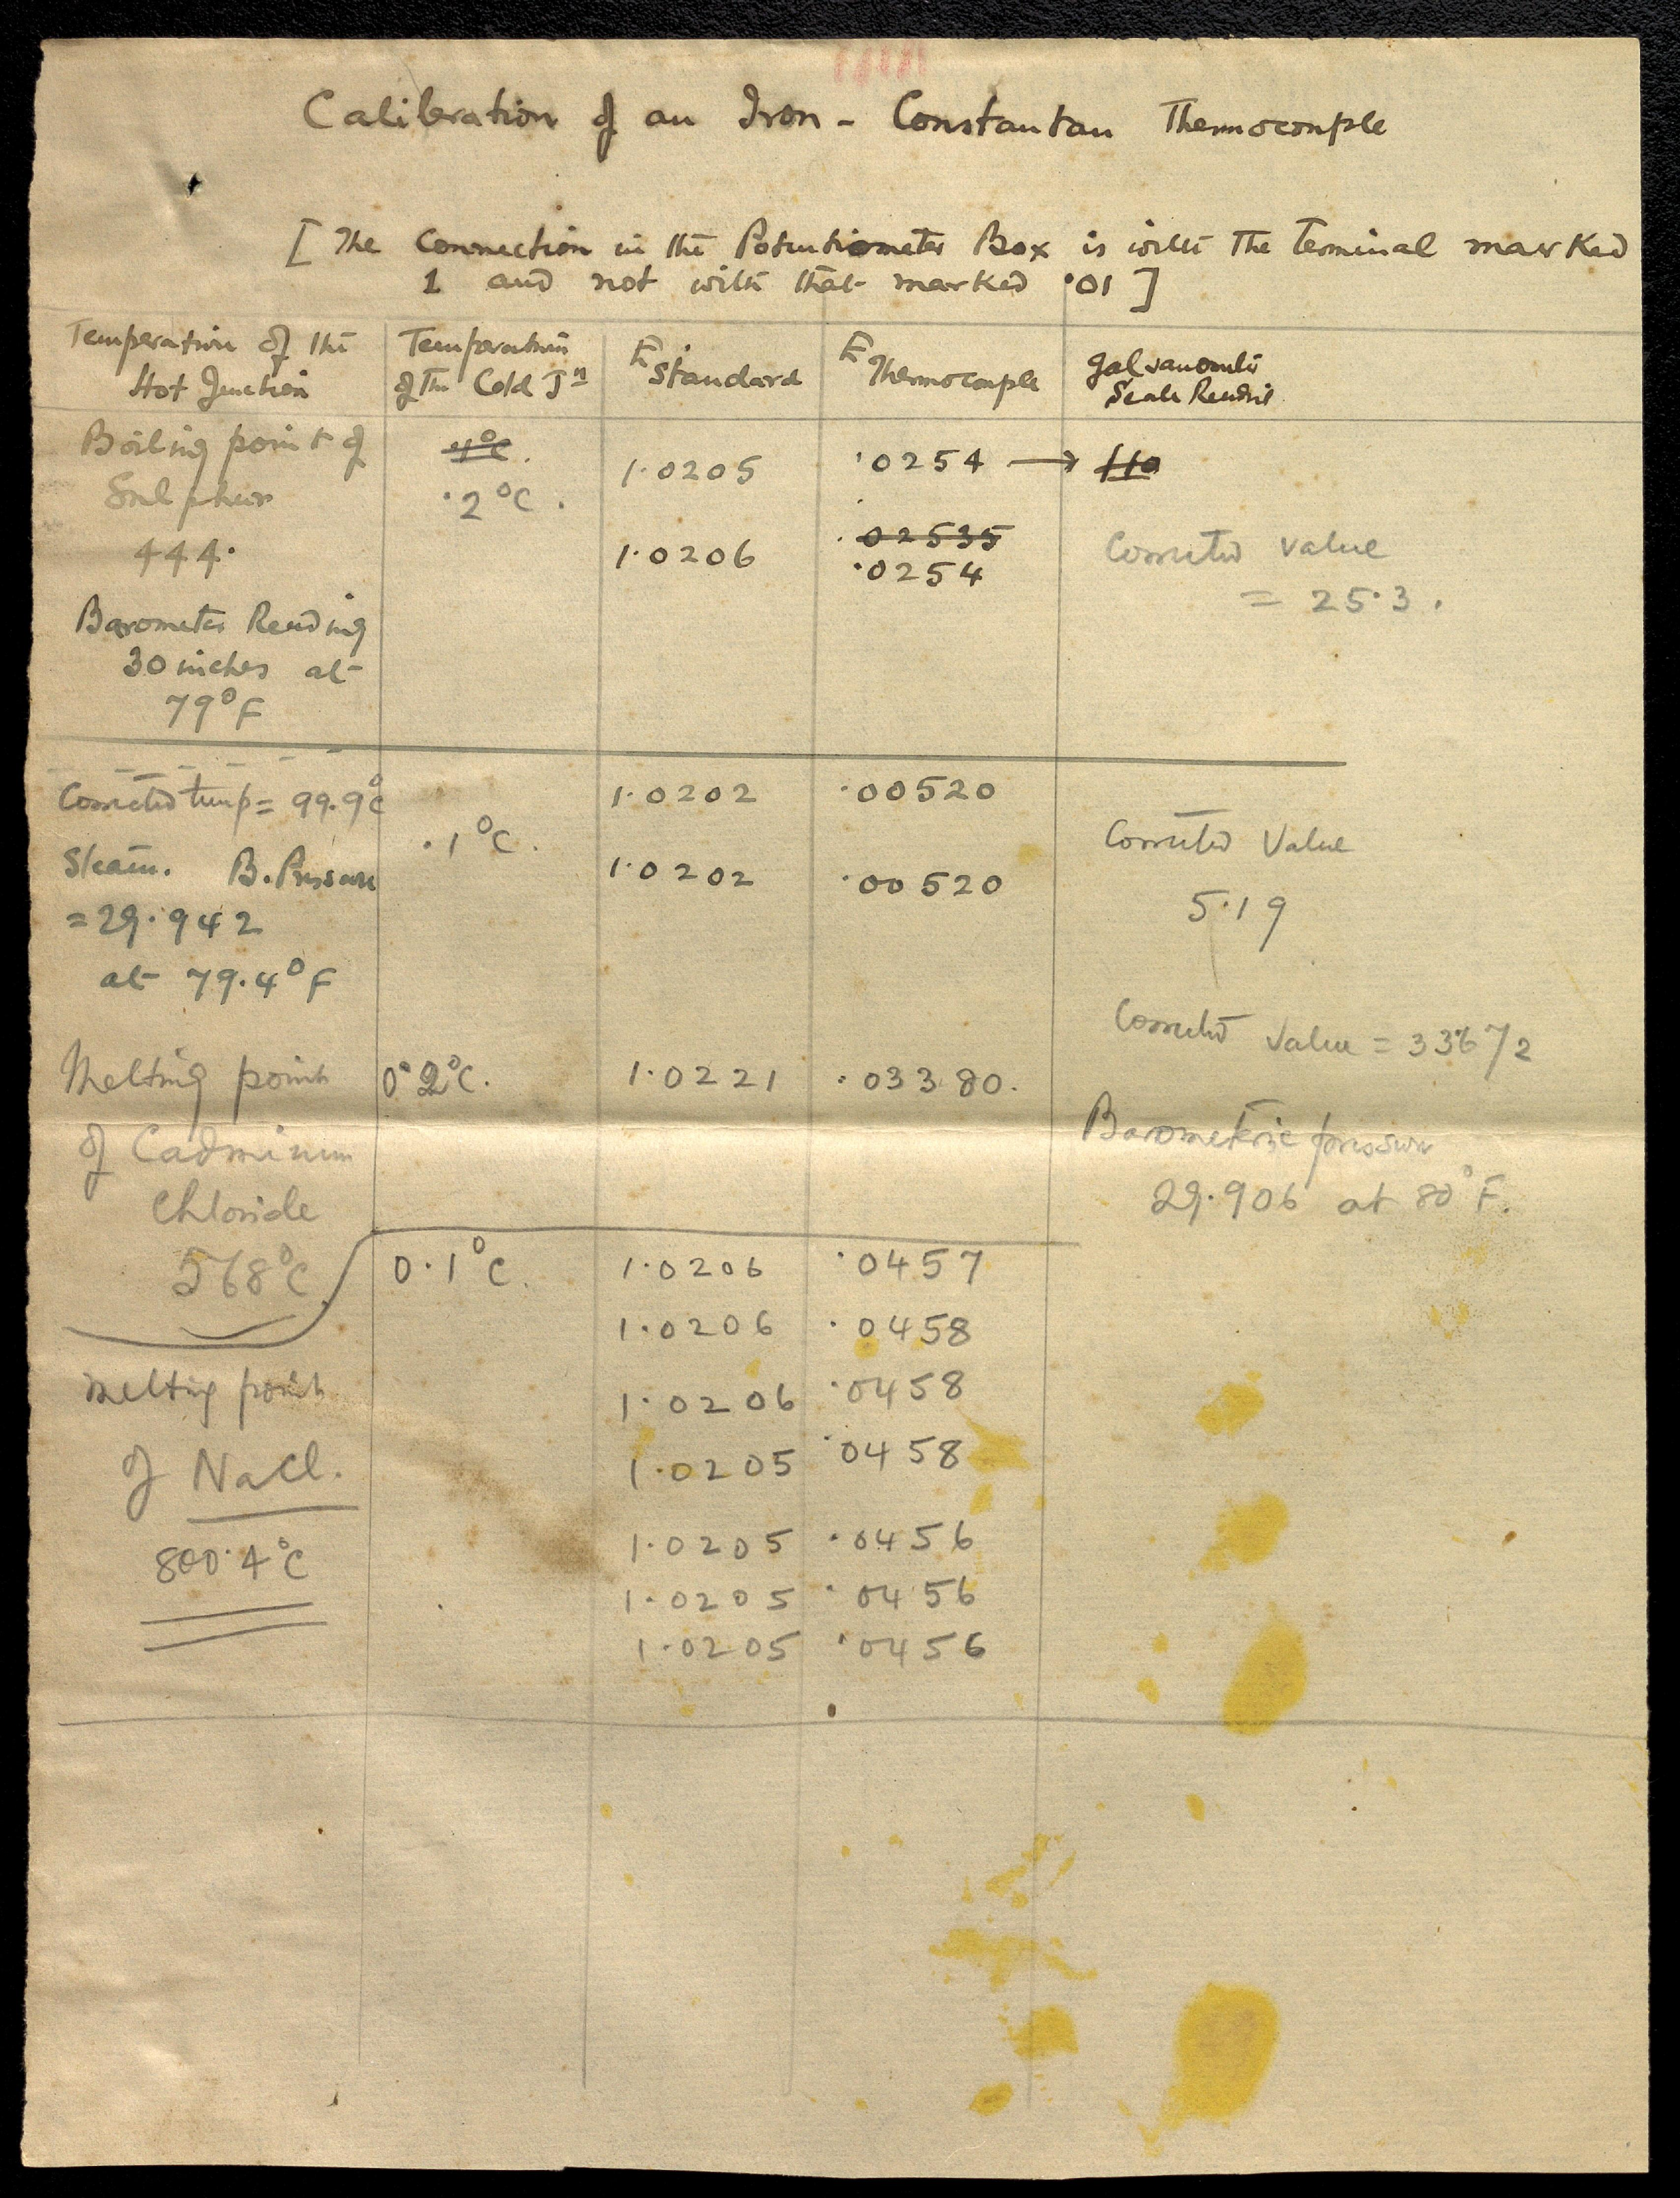 Calibration of an Iron - Constantan Thermocouple
[ The Connection in the Potentiometer Box is with the terminal marked
1 and not with that marked ·01 ]
Temperature of the Hot Junction
Temperature of the Cold Jn
E Standard
E Thermocouple
Galvanometer Scale Reading
Boiling point of
Sulphur
444·
Barometer Reading
30 inches at
79°F
4°C.
·2°C.
1·0205
1·0206
·0254 →
·02535
·0254
110
Corrected value
= 25·3.
Corrected temp = 99.9°C
Steam. B. Pressure
= 29·942
at 79.4°F
·1°C.
1·0202
1·0202
·00520
·00520
Corrected Value
5·19
Melting point
of Cadmium
Chloride
568°C
0·2°C.
1·0221
·03380.
Corrected value =
Barometric pressure
29·906 at 80°F.
Melting point
of NaCl.
800·4°C
0·1°C.
1·0206 ·0457
1·0206 ·0458
1·0206 ·0458
1·0205 ·0458
1·0205 ·0456
1·0205 ·0456
1·0205 ·0456